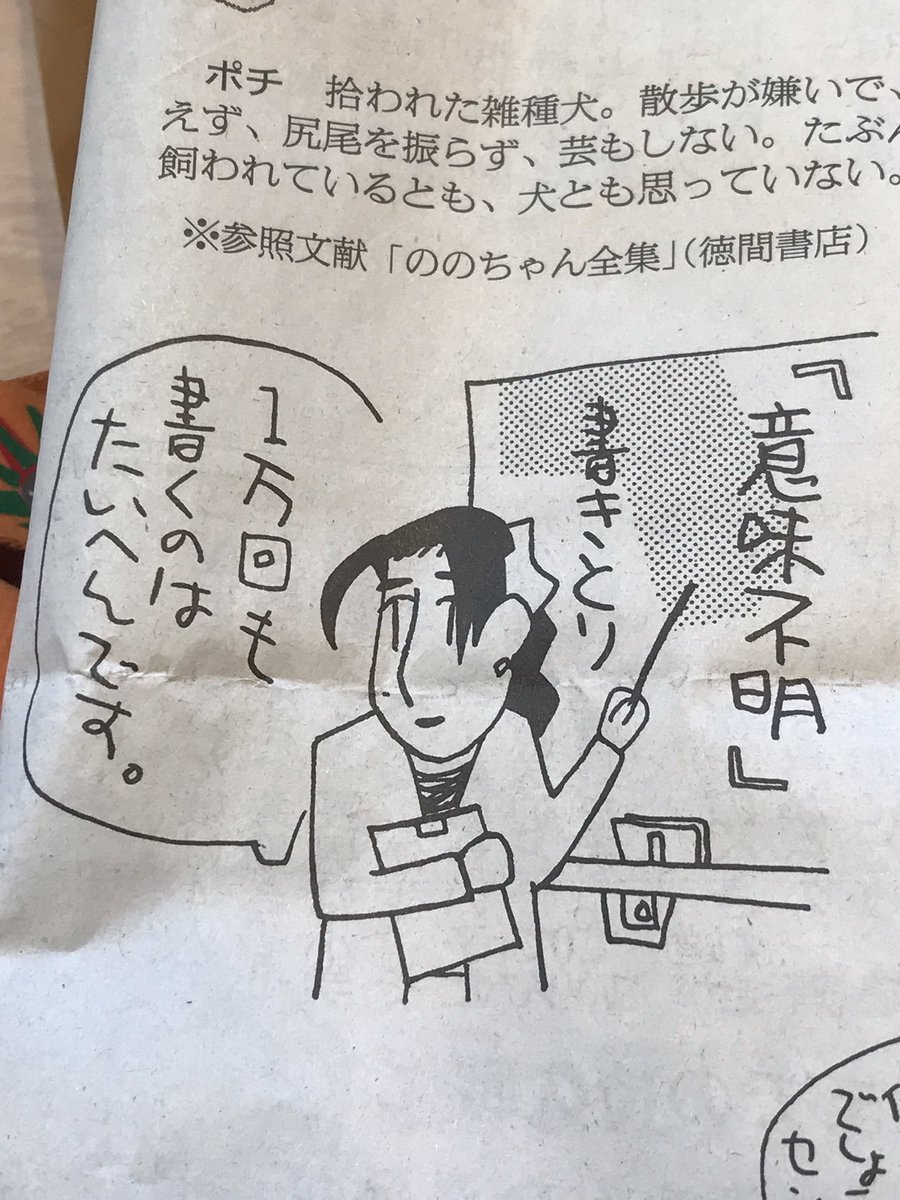 ポチ　拾われた雑種犬。散歩が嫌いで、
えず、尻尾を振らず、芸もしない。たぶん
飼われているとも、犬とも思っていない。
※参照文献「ののちゃん全集」（徳間書店）
『意味不明』
書きとり
1万回も
書くのは
たいへんです。
でしょ
セ